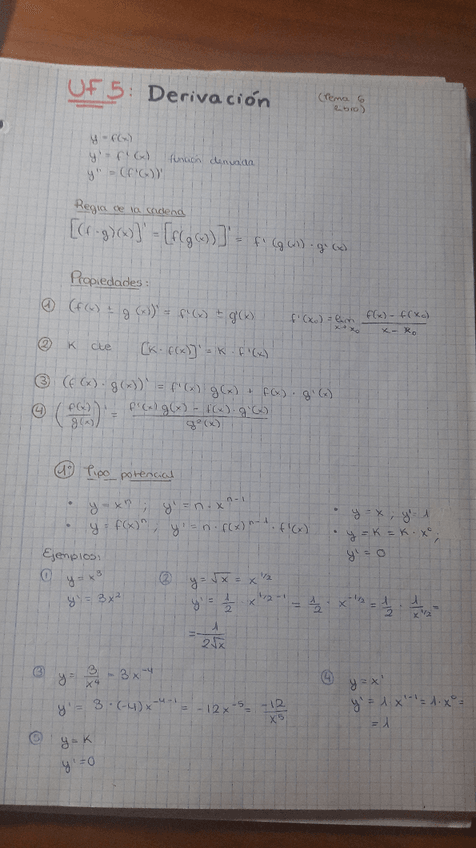 UF5: Derivación (Tema 6 libro)
y = f(x)
y' = f'(x) función derivada
y'' = (f'(x))'
Regla de la cadena
[(f·g)(x)]' = [f(g(x))]' = f'(g(x))·g'(x)
Propiedades:
① (f(x) ± g(x))' = f'(x) ± g'(x) f'(x₀) = lim x→x₀ (f(x) - f(x₀))/(x - x₀)
② K cte [K·f(x)]' = K·f'(x)
③ (f(x)·g(x))' = f'(x) g(x) + f(x)·g'(x)
④ (f(x)/g(x))' = (f'(x) g(x) - f(x)·g'(x))/g²(x)
①º Tipo potencial
• y = xⁿ ; y' = n·xⁿ⁻¹ • y = x ; y' = 1
• y = f(x)ⁿ ; y' = n·f(x)ⁿ⁻¹·f'(x) • y = K = K·x⁰ ;
y' = 0
Ejemplos:
① y = x³ ② y = √x = x^1/2
y' = 3x² y' = 1/2 x^1/2-1 = 1/2 · x^-1/2 = 1/2 · 1/x^1/2 =
= 1/2√x
③ y = 3/x⁴ = 3x⁻⁴ ④ y = x¹
y' = 3·(-4)x⁻⁴⁻¹ = -12x⁻⁵ = -12/x⁵ y' = 1·x¹⁻¹ = 1·x⁰ =
= 1
⑤ y = K
y' = 0